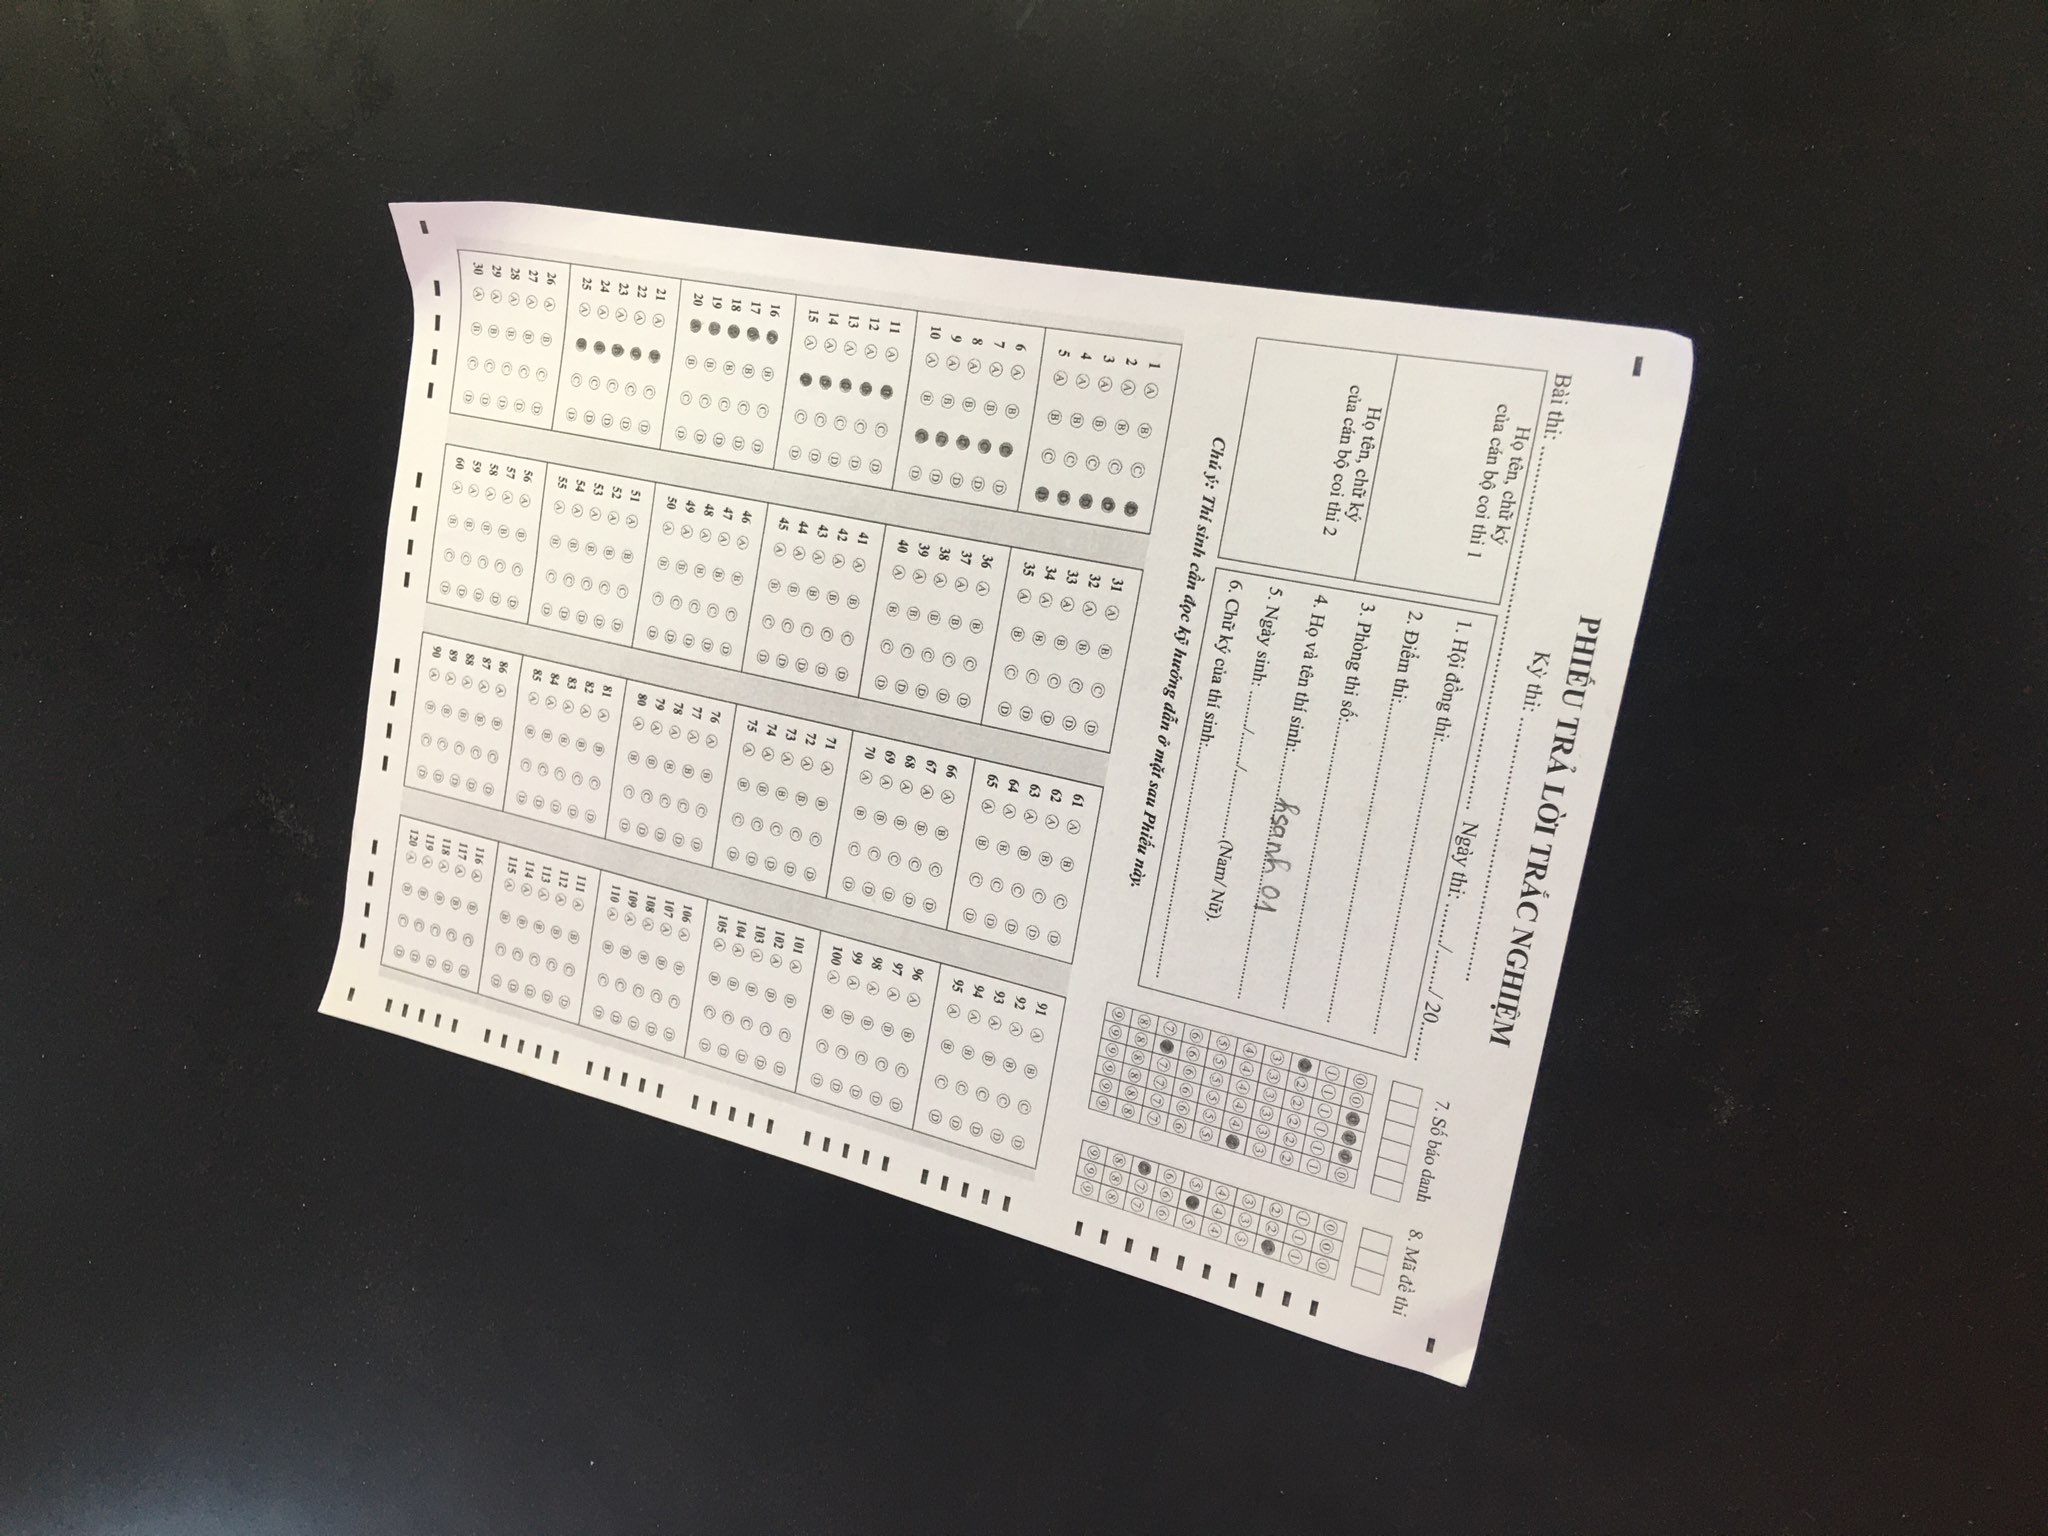 PHIẾU TRẢ LỜI TRẮC NGHIỆM
Kỳ thi: ..........................................................
Bài thi: ..................................................................................
Ngày thi: ......../......../ 20........
Họ tên, chữ ký
của cán bộ coi thi 1
Họ tên, chữ ký
của cán bộ coi thi 2
1. Hội đồng thi:..........................................................
2. Điểm thi:..........................................................
3. Phòng thi số:..........................................................
4. Họ và tên thí sinh:.......... hsanh 01 ..........
5. Ngày sinh: ......../......./...............(Nam/ Nữ).
6. Chữ ký của thí sinh:..........................................................
7. Số báo danh
8. Mã đề thi
0 0 0 0 0 0
1 1 1 1 1
2 2 2 2 2
3 3 3 3 3 3
4 4 4 4 4
5 5 5 5 5 5
6 6 6 6 6 6
7 7 7 7 7 7
8 8 8 8 8 8
9 9 9 9 9 9
0 0 0
1 1 1
2 2
3 3 3
4 4 4
5 5
6 6 6
7 7
8 8 8
9 9 9
Chú ý: Thí sinh cần đọc kỹ hướng dẫn ở mặt sau Phiếu này.
1 A B C D
2 A B C D
3 A B C D
4 A B C D
5 A B C D
6 A B C D
7 A B C D
8 A B C D
9 A B C D
10 A B C D
11 A B C D
12 A B C D
13 A B C D
14 A B C D
15 A B C D
16 A B C D
17 A B C D
18 A B C D
19 A B C D
20 A B C D
21 A B C D
22 A B C D
23 A B C D
24 A B C D
25 A B C D
26 A B C D
27 A B C D
28 A B C D
29 A B C D
30 A B C D
31 A B C D
32 A B C D
33 A B C D
34 A B C D
35 A B C D
36 A B C D
37 A B C D
38 A B C D
39 A B C D
40 A B C D
41 A B C D
42 A B C D
43 A B C D
44 A B C D
45 A B C D
46 A B C D
47 A B C D
48 A B C D
49 A B C D
50 A B C D
51 A B C D
52 A B C D
53 A B C D
54 A B C D
55 A B C D
56 A B C D
57 A B C D
58 A B C D
59 A B C D
60 A B C D
61 A B C D
62 A B C D
63 A B C D
64 A B C D
65 A B C D
66 A B C D
67 A B C D
68 A B C D
69 A B C D
70 A B C D
71 A B C D
72 A B C D
73 A B C D
74 A B C D
75 A B C D
76 A B C D
77 A B C D
78 A B C D
79 A B C D
80 A B C D
81 A B C D
82 A B C D
83 A B C D
84 A B C D
85 A B C D
86 A B C D
87 A B C D
88 A B C D
89 A B C D
90 A B C D
91 A B C D
92 A B C D
93 A B C D
94 A B C D
95 A B C D
96 A B C D
97 A B C D
98 A B C D
99 A B C D
100 A B C D
101 A B C D
102 A B C D
103 A B C D
104 A B C D
105 A B C D
106 A B C D
107 A B C D
108 A B C D
109 A B C D
110 A B C D
111 A B C D
112 A B C D
113 A B C D
114 A B C D
115 A B C D
116 A B C D
117 A B C D
118 A B C D
119 A B C D
120 A B C D